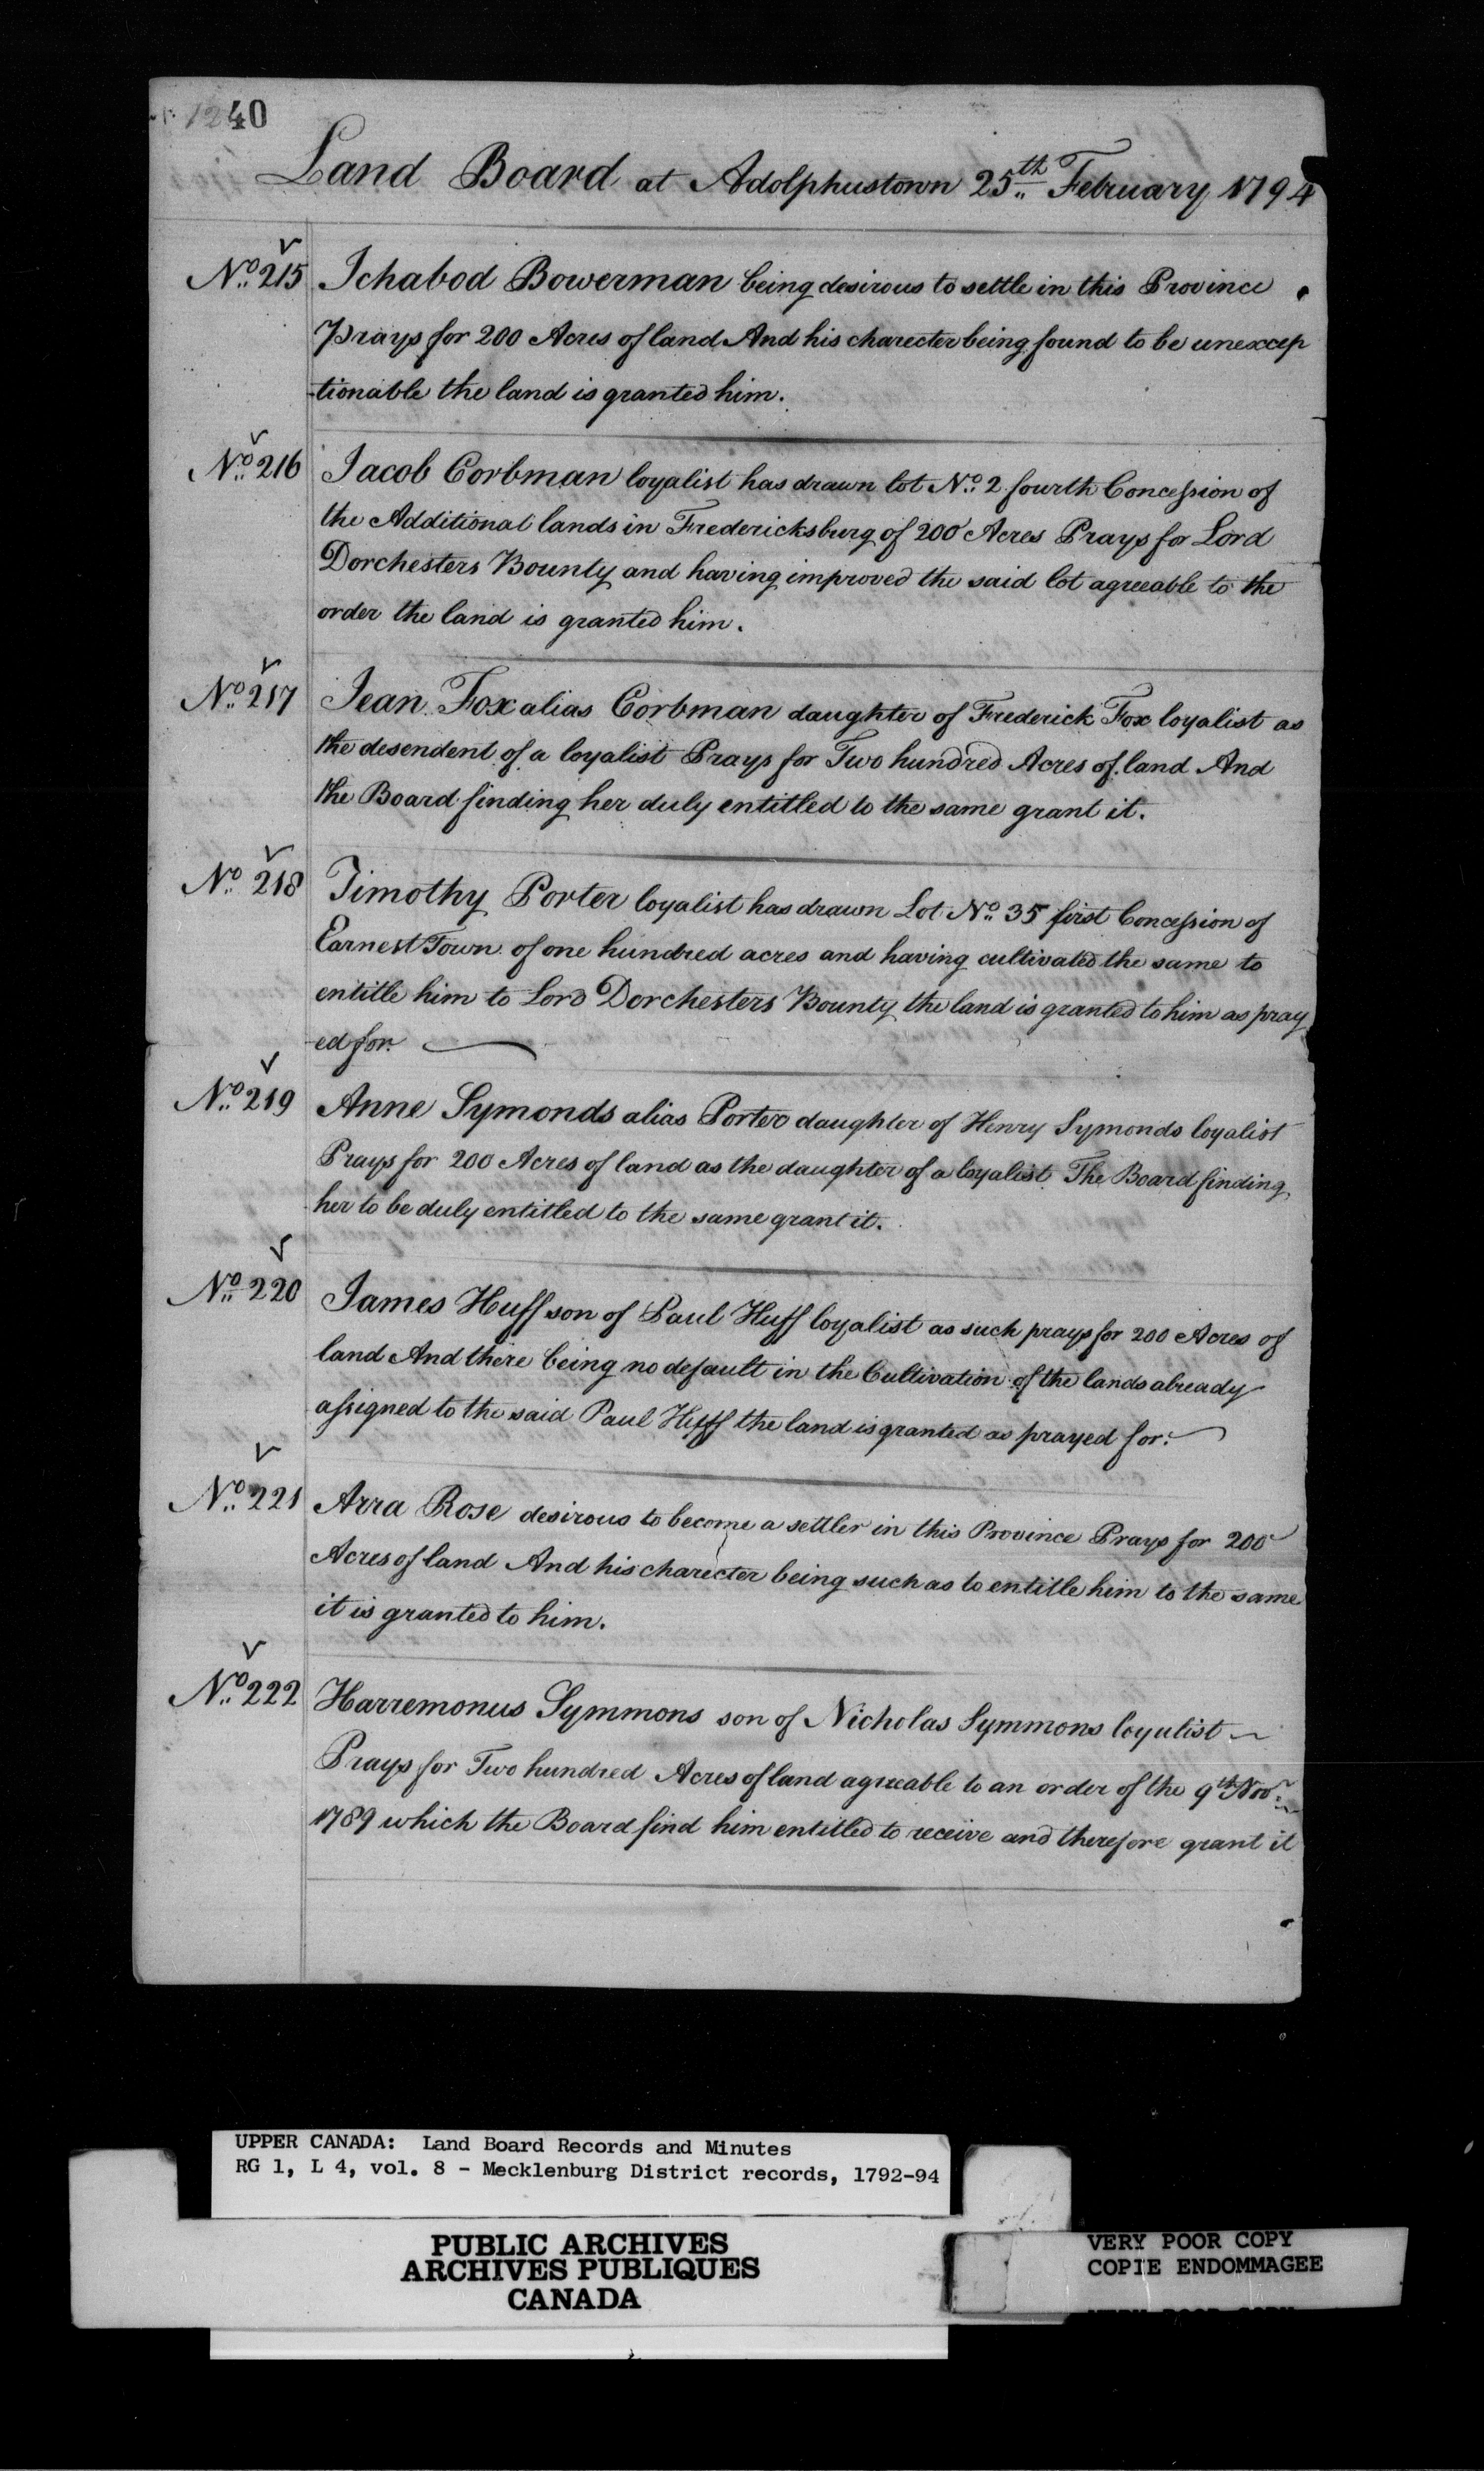 1240
Land Board at Adolphustown 25th February 1794
No. 215 Ichabod Bowerman being desirous to settle in this Province
Prays for 200 Acres of land And his charecter being found to be unexcep
-tionable the land is granted him.
No. 216 Jacob Corbman loyalist has drawn lot No. 2 fourth Concession of
the Additional lands in Fredericksburg of 200 Acres Prays for Lord
Dorchesters Bounty and having improved the said lot agreeable to the
order the land is granted him.
No. 217 Jean Fox alias Corbman daughter of Frederick Fox loyalist as
the desendent of a loyalist Prays for Two hundred Acres of land And
the Board finding her duly entitled to the same grant it.
No. 218 Timothy Porter loyalist has drawn Lot No. 35 first Concession of
Earnest Town of one hundred acres and having cultivated the same to
entitle him to Lord Dorchesters Bounty the land is granted to him as pray
-ed for.
No. 219 Anne Symonds alias Porter daughter of Henry Symonds loyalist
Prays for 200 Acres of land as the daughter of a loyalist The Board finding
her to be duly entitled to the same grant it.
No. 220 James Huff son of Paul Huff loyalist as such prays for 200 Acres of
land And there being no default in the Cultivation of the lands already
assigned to the said Paul Huff the land is granted as prayed for.
No. 221 Arra Rose desirous to become a settler in this Province Prays for 200
Acres of land And his charecter being such as to entitle him to the same
it is granted to him.
No. 222 Harremonus Symmons son of Nicholas Symmons loyalist
Prays for Two hundred Acres of land agreeable to an order of the 9th Novr.
1789 which the Board find him entitled to receive and therefore grant it
UPPER CANADA: Land Board Records and Minutes
RG 1, L 4, vol. 8 - Mecklenburg District records, 1792-94
PUBLIC ARCHIVES
ARCHIVES PUBLIQUES
CANADA
VERY POOR COPY
COPIE ENDOMMAGEE